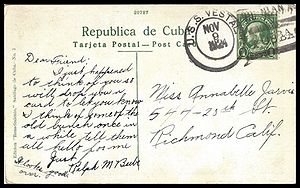 20727
Republica de Cuba
Tarjeta Postal—Post Car
U.S.S. VESTA
NOV
9
Dear Friend:
I just happened
to think of you so
will drop you a
card to let you know
I think of some of the
old bunch once in
a while tell them
all hello for me
Just
Ralph M
Miss Annabelle Jarvis
547-23rd St.
Richmond Calif.